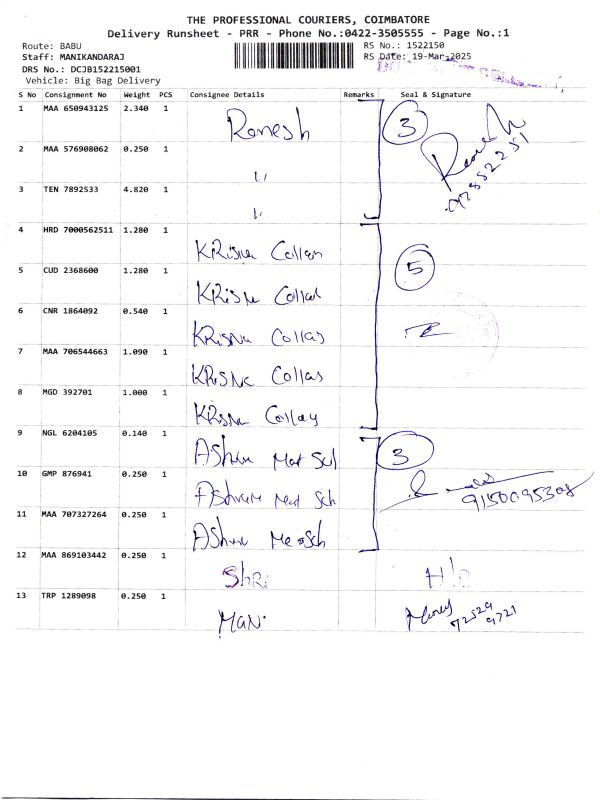 THE PROFESSIONAL COURIERS, COIMBATORE
Delivery Runsheet - PRR - Phone No.:0422-3505555 - Page No.:1
Route: BABU
Staff: MANIKANDARAJ
DRS No.: DCJB152215001
Vehicle: Big Bag Delivery
RS No.: 1522150
RS Date: 19-Mar-2025
S No Consignment No Weight PCS Consignee Details Remarks Seal & Signature
1 MAA 650943125 2.340 1 Ramesh 3
2 MAA 576908062 0.250 1 "
3 TEN 7892533 4.820 1 "
4 HRD 7000562511 1.280 1 KRisna Collan
5 CUD 2368600 1.280 1 KRisn Collat 5
6 CNR 1864092 0.540 1 KRisna Collas
7 MAA 706544663 1.090 1 KRisna Collas
8 MGD 392701 1.000 1 Krisna Collay
9 NGL 6204105 0.140 1 Mat Sch 3
10 GMP 876941 0.250 1 Mat Sch 9150095308
11 MAA 707327264 0.250 1
12 MAA 869103442 0.250 1 Shri H/o
13 TRP 1289098 0.250 1 MaNi 72529
9721